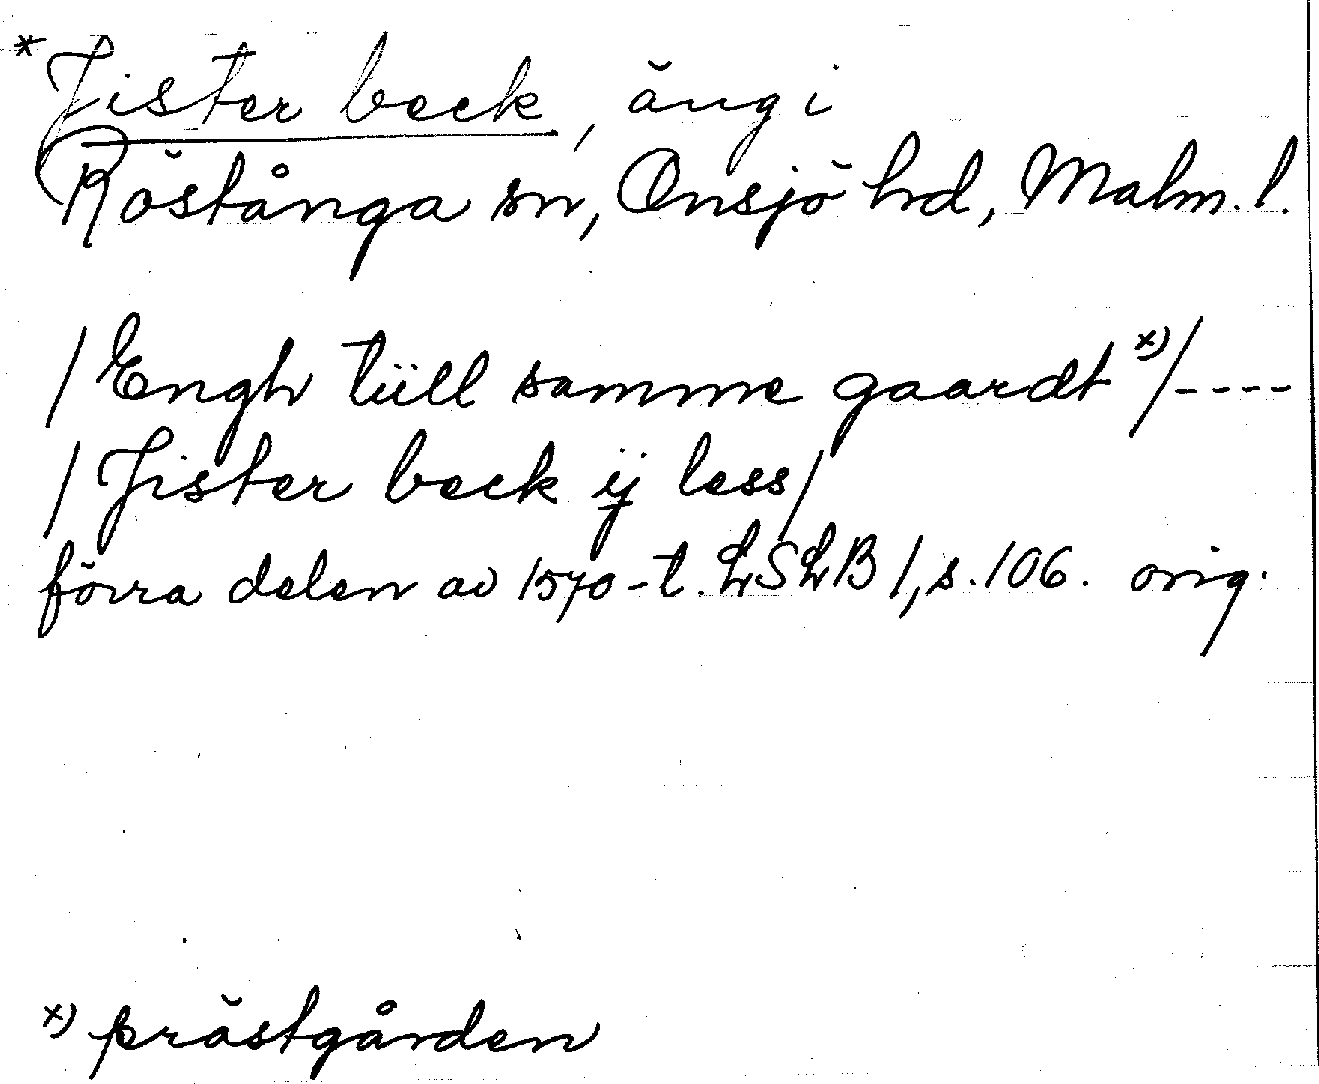 *Jister beck, äng i
Röstånga sn, Onsjö hd, Malm. l.
/Engh tiill samme gaardt x)/----
/Jister beck ij less/
förra delen av 1570-t. LSLB 1, s. 106. orig.
x) prästgården